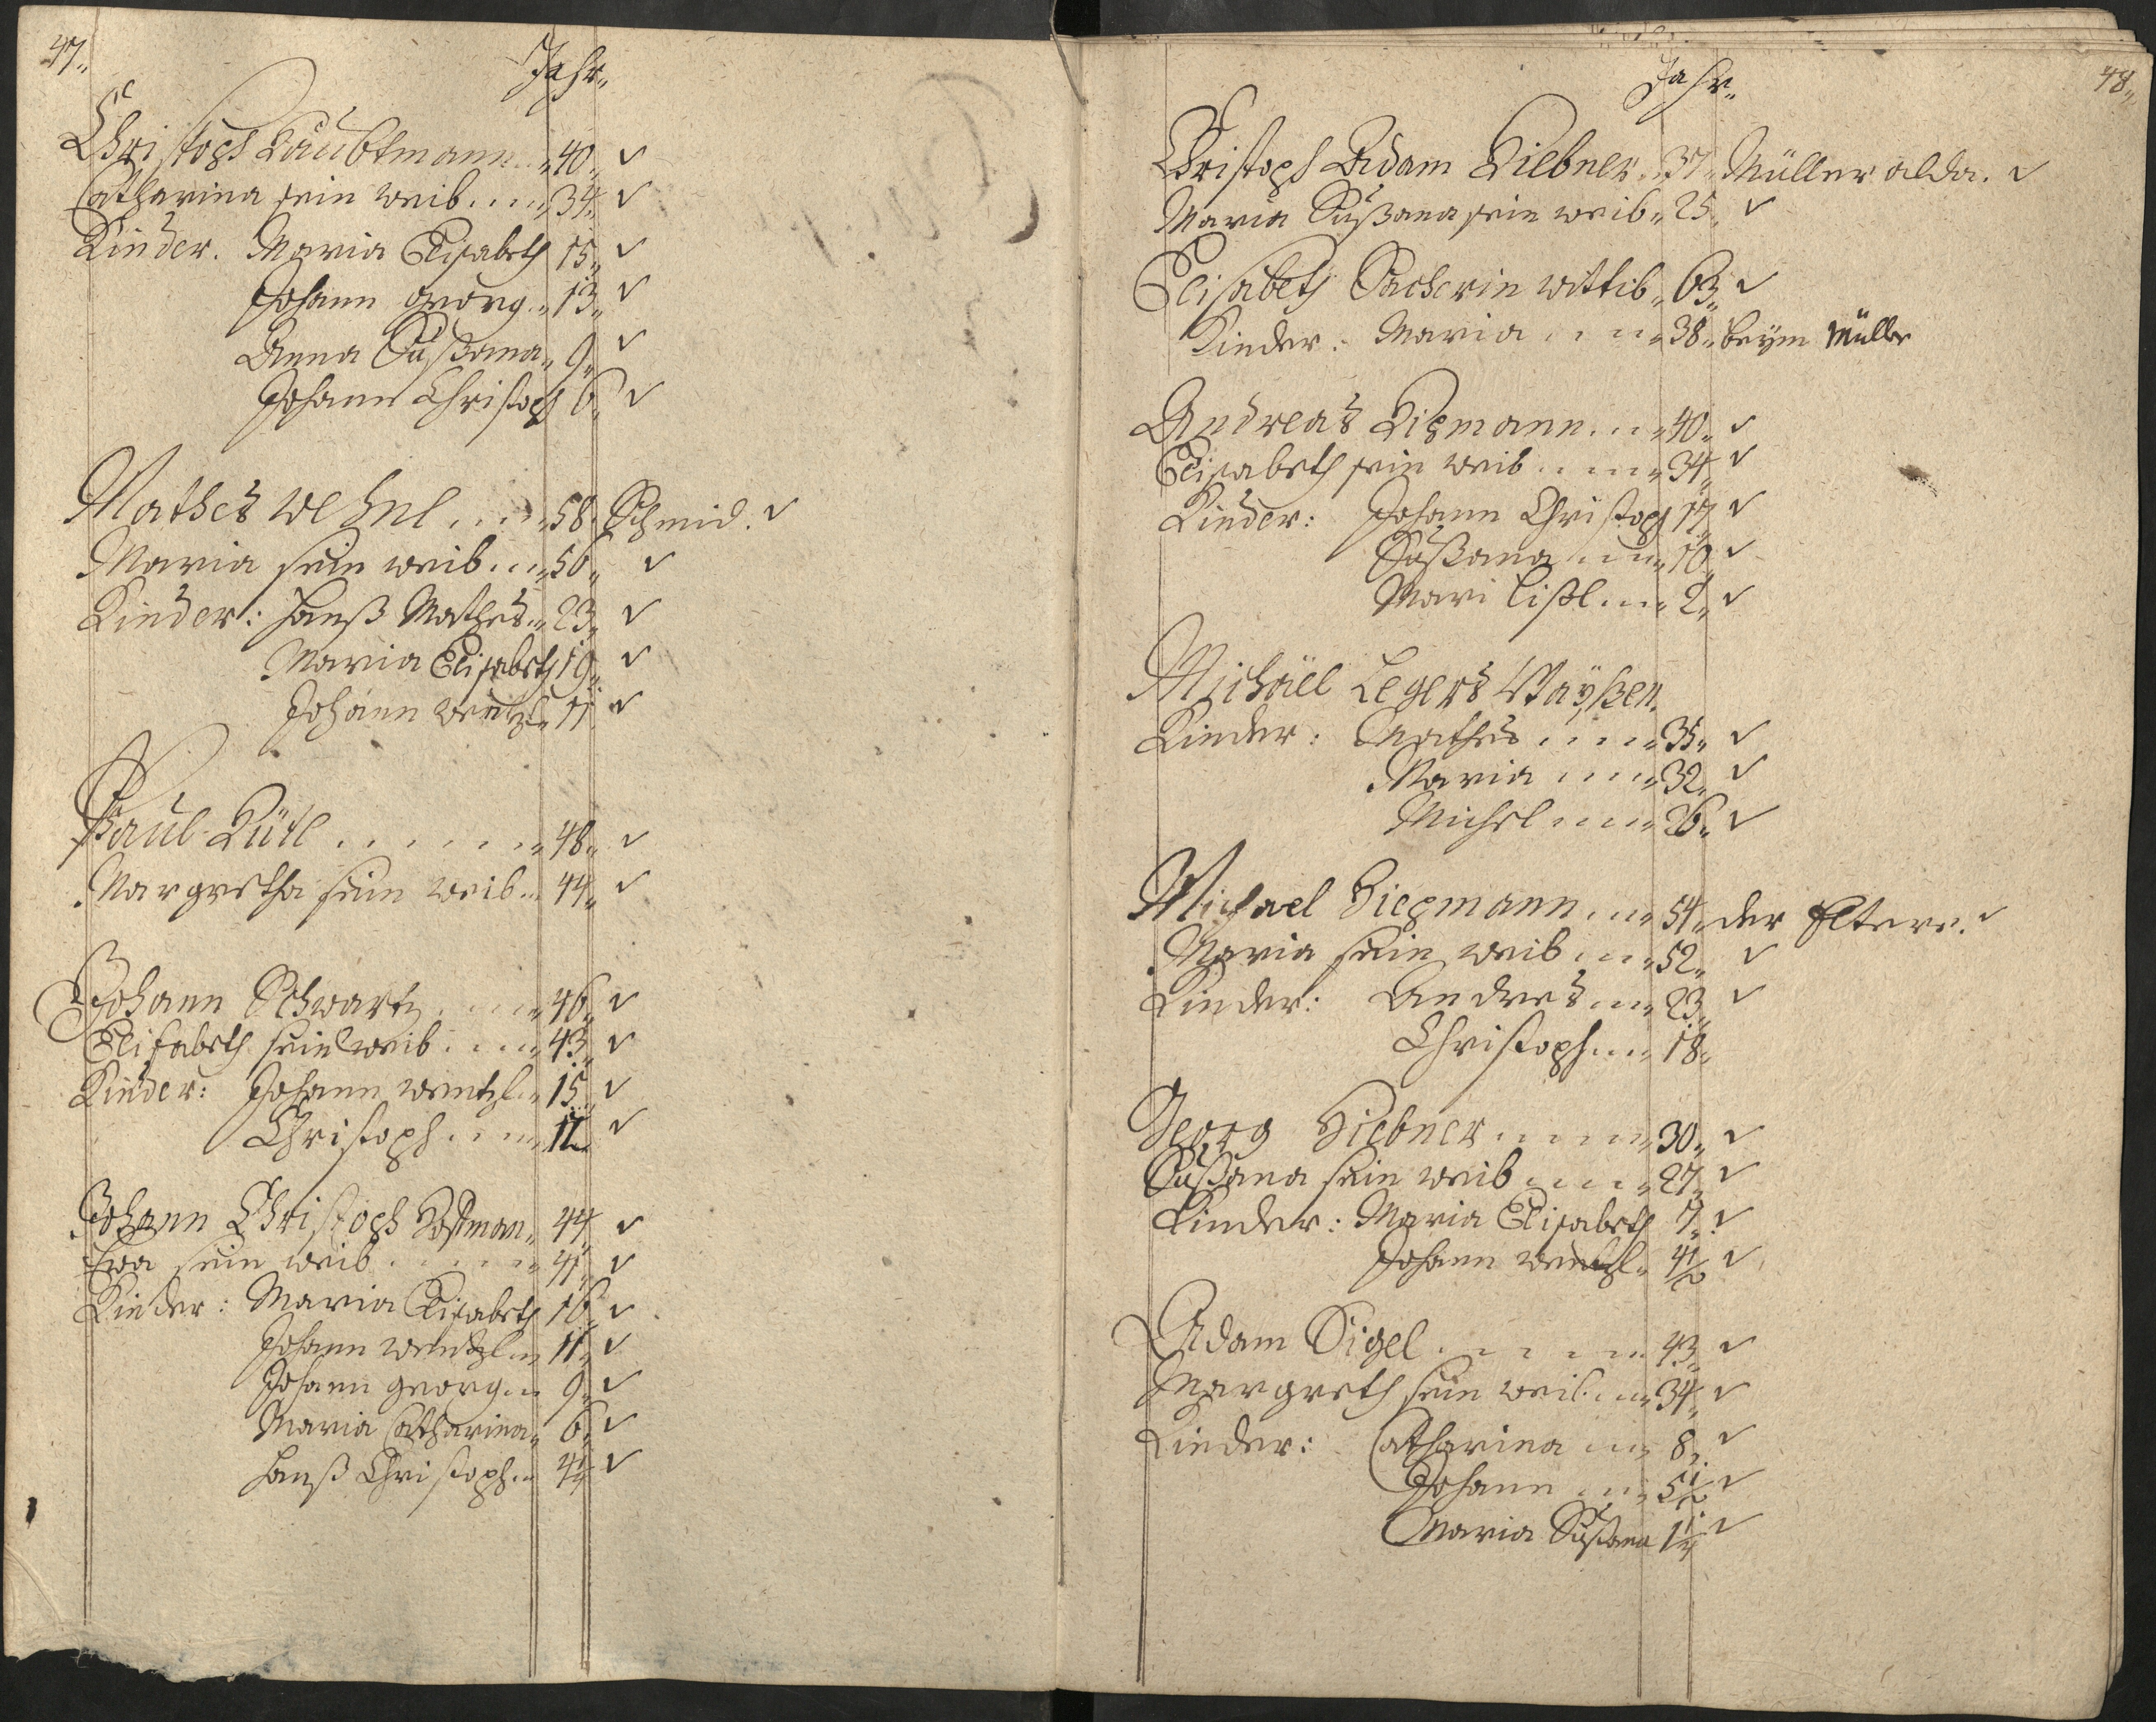 47.
Jahr.
Christoph Laubtmann 40. ✓
Catharina sein weib 34. ✓
Kinder. Maria Elisabeth 15. ✓
Johann Georg 13. ✓
Anna Sußana 9. ✓
Johann Christoph 6. ✓
Mathes Wehnl 58. Schmid. ✓
Maria sein weib 56. ✓
Kinder: Hanß Mathes 23. ✓
Maria Elisabeth 19. ✓
Johann Wentzl 11. ✓
Paul 48. ✓
Margretha sein weib 44. ✓
Johann Schwartz 46. ✓
Elisabeth sein weib 43. ✓
Kinder: Johann Wentzl 15. ✓
Christoph ✓
Johann Christoph 44. ✓
Eva sein weib 41. ✓
Kinder: Maria Elisabeth 16. ✓
Johann Wentzl 11. ✓
Johann Georg 9. ✓
Maria Catharina 6. ✓
Hanß Christoph ✓
48.
Jahr.
Christoph Adam Hiebner 37. Müller alda. ✓
Maria Sußana sein weib 25. ✓
Elisabeth Sacherin wittib 63. ✓
Kinder: Maria 38. beym Müller
Andreas 40. ✓
Elisabeth sein weib 34. ✓
Kinder: Johann Christoph 17. ✓
Sußana 10. ✓
Mari Lißl 2. ✓
Michäel Legers Waÿßen.
Kinder: Mathes 35. ✓
Maria 32. ✓
Michel 26. ✓
Michael 54. der Eltere. ✓
Maria sein weib 52. ✓
Kinder: Andres 23. ✓
Christoph 18.
Georg Hiebner 30. ✓
Sußana sein weib 27. ✓
Kinder: Maria Elisabeth 7. ✓
Johann Wentzl 4 1/2 ✓
Adam Sigel 43. ✓
Margreth sein weib 34. ✓
Kinder: Catharina 8. ✓
Johann 5 1/2 ✓
Maria Sußana 1 1/4 ✓